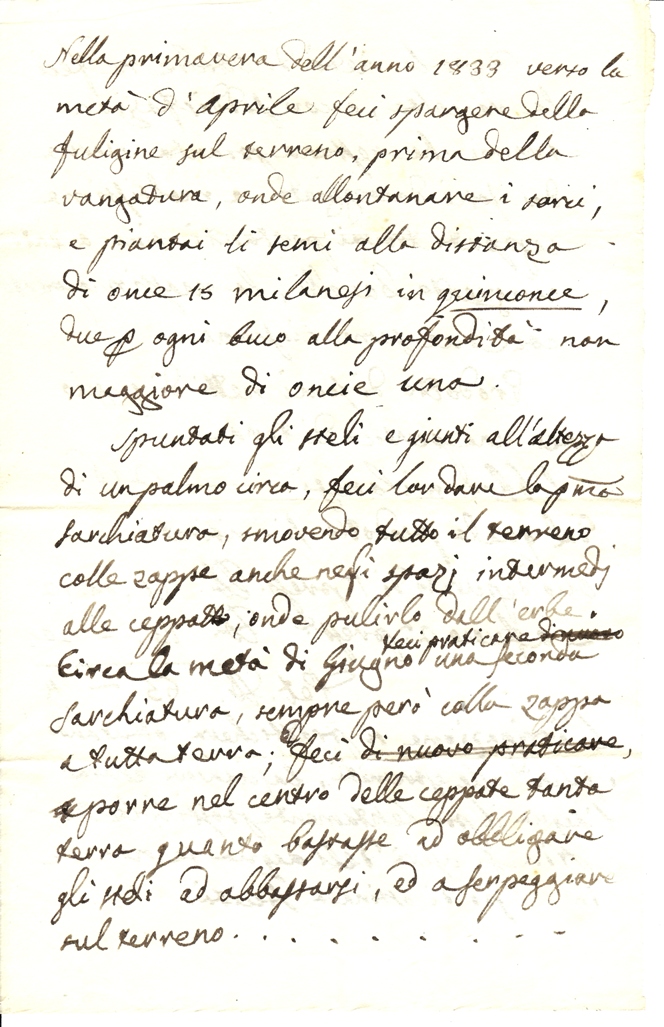 Nella primavera dell'anno 1833 verso la
metà d'Aprile feci spargere della
fuligine sul terreno, prima della
vangatura, onde allontanare i sorci,
e piantai li semi alla distanza
di once 15 milanesi in quinconce,
due p ogni buco alla profondità non
maggiore di oncie una.
Spuntati gli steli e giunti all'altezza
di un palmo circa, feci lor dare la pma
sarchiatura, smovendo tutto il terreno
colle zappe anche nesi spazj intermedj
alle ceppate, onde pulirlo dall'erbe.
feci praticare di nuovo
Circa la metà di Giugno una seconda
sarchiatura, sempre però colla zappa
a tutta terra; e feci di nuovo praticare,
porre nel centro delle ceppate tanta
terra quanto bastasse ad obbligare
gli steli ad abbassarsi, ed a serpeggiare
sul terreno. . . . . . . . -